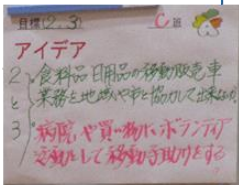 目標(2,3) C班
アイデア
2 食料品日用品の移動販売車
と 業務を地域や市と協力して出来ないか
3 病院や買い物にボランティア
活動として移動手助けをする